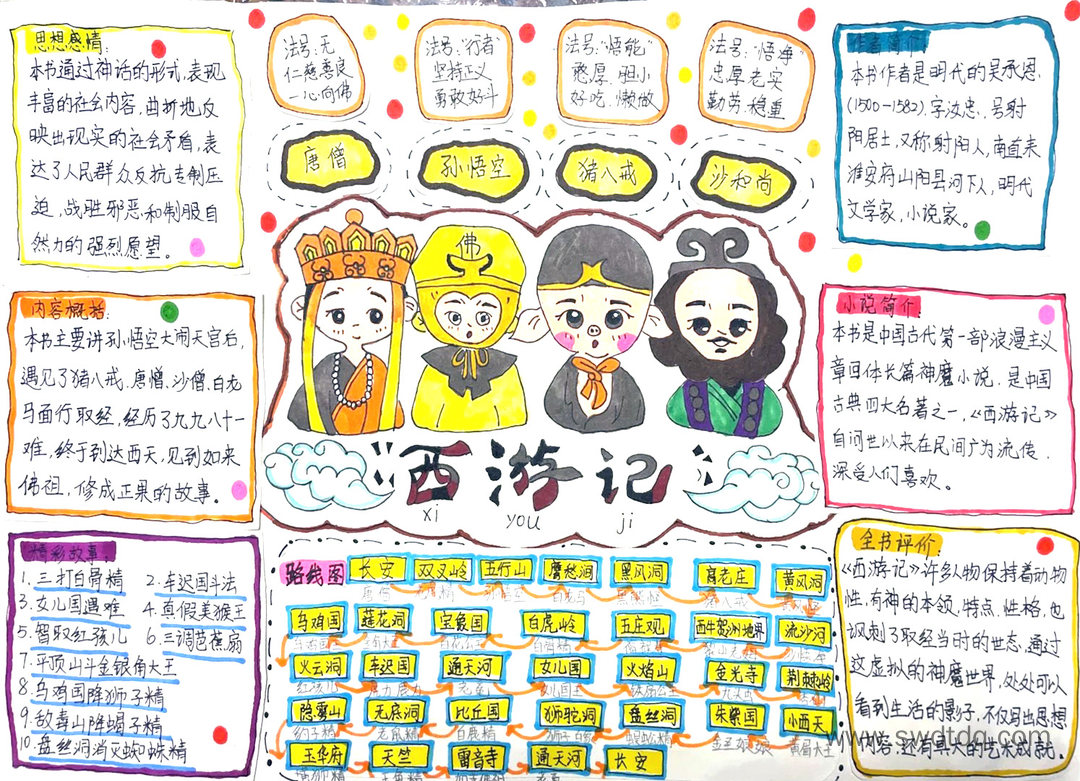 思想感情
本书通过神话的形式,表现
丰富的社会内容,曲折地反
映出现实的社会矛盾,表
达了人民群众反抗专制压
迫,战胜邪恶和制服自
然力的强烈愿望。
法号:无
仁慈善良
一心向佛
法号:"行者"
坚持正义
勇敢好斗
法号:"悟能"
憨厚、胆小
好吃、懒做
法号:"悟净"
忠厚老实
勤劳、稳重
唐僧
孙悟空
猪八戒
沙和尚
作者简介
本书作者是明代的吴承恩,
(1500-1582),字汝忠、号射
阳居士,又称射阳人,南直隶
淮安府山阳县河下人,明代
文学家,小说家。
内容概括
本书主要讲到孙悟空大闹天宫后,
遇见了猪八戒、唐僧、沙僧、白龙
马面行取经,经历了九九八十一
难,终于到达西天,见到如来
佛祖,修成正果的故事。
佛
西游记
xi you ji
小说简介
本书是中国古代第一部浪漫主义
章回体长篇神魔小说,是中国
古典四大名著之一,《西游记》
自问世以来在民间广为流传,
深受人们喜欢。
精彩故事:
1.三打白骨精 2.车迟国斗法
3.女儿国遇难 4.真假美猴王
5.智取红孩儿 6.三调芭蕉扇
7.平顶山斗金银角大王
8.乌鸡国降狮子精
9.敌毒山降蝎子精
10.盘丝洞消灭蜘蛛精
路线图 长安 双叉岭 五行山 鹰愁涧 黑风洞 高老庄 黄风洞
乌鸡国 莲花洞 宝象国 白虎岭 五庄观 西牛贺洲地界 流沙河
火云洞 车迟国 通天河 女儿国 火焰山 金光寺 荆棘岭
隐雾山 无底洞 比丘国 狮驼洞 盘丝洞 朱紫国 小西天
豹子精 老鼠精 蜘蛛精 黄眉大王
玉华府 天竺 雷音寺 通天河 长安
全书评价:
《西游记》许多人物保持着动物
性,有神的本领、特点、性格,也
讽刺了取经当时的世态,通过
这虚拟的神魔世界,处处可以
看到生活的影子,不仅写出思想
内容,还有具大的艺术成就。